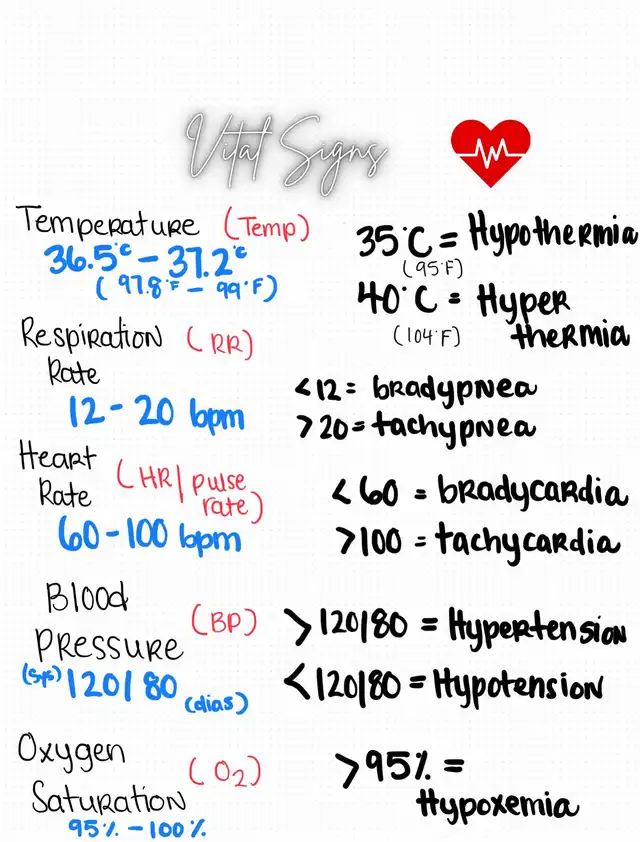 Vital Signs
Temperature (Temp)
36.5°C - 37.2°C
(97.8°F - 99°F)
35°C = Hypothermia
(95°F)
40°C = Hyper
(104°F) thermia
Respiration (RR)
Rate
12 - 20 bpm
<12 = bradypnea
>20 = tachypnea
Heart
Rate (HR | pulse
rate)
60 - 100 bpm
<60 = bradycardia
>100 = tachycardia
Blood
Pressure (BP)
(sys) 120/80 (dias)
>120/80 = Hypertension
<120/80 = Hypotension
Oxygen
Saturation (O2)
95% - 100%
>95% =
Hypoxemia